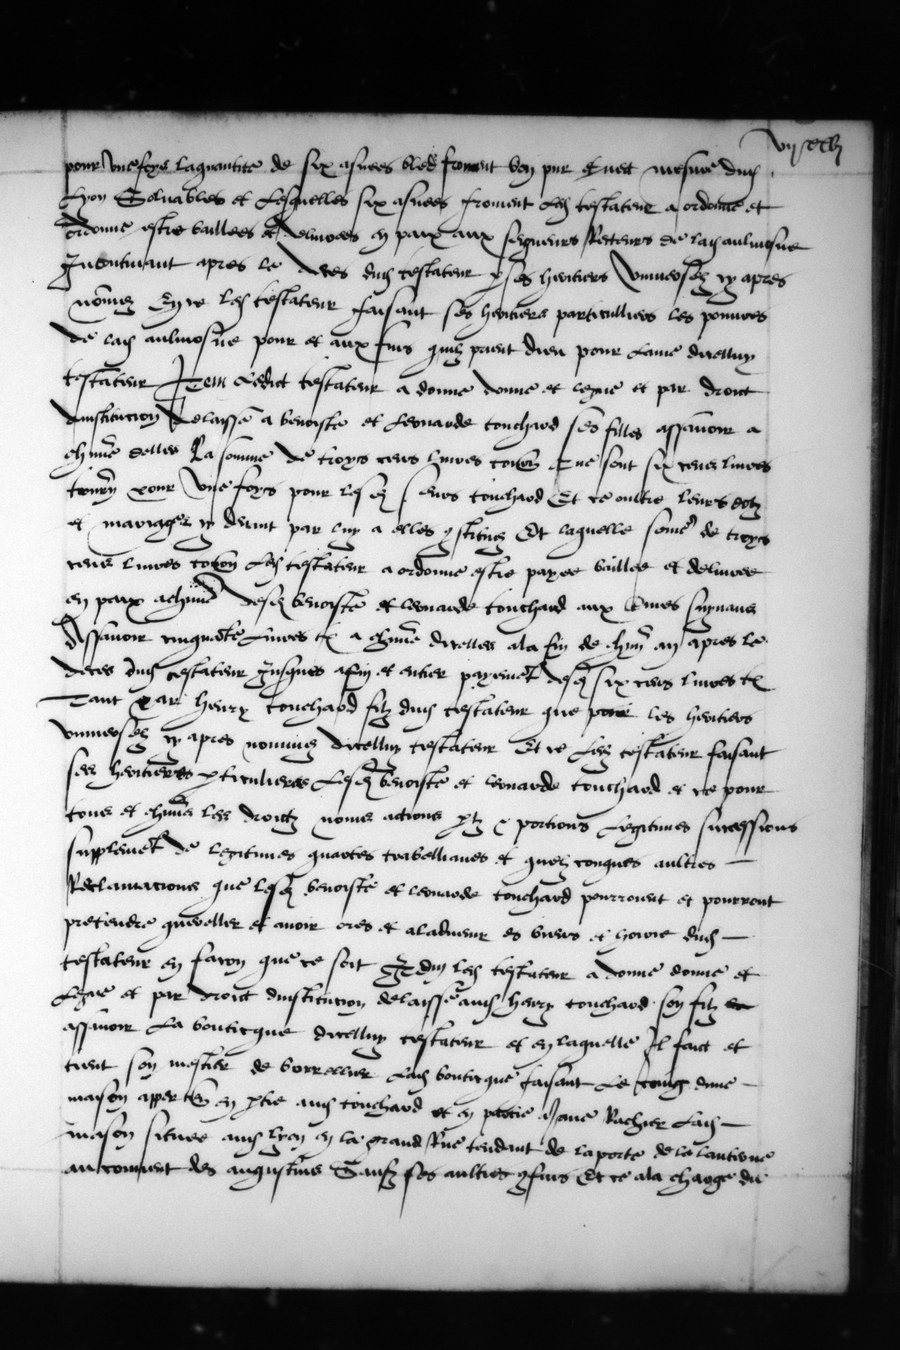 pour une foys la quantite de six asnees bled froment bon pur et nect mesure dud
Lyon et lesquelles six asnees froment led testateur a ordonne et
ordonne estre baillees et delivrees en paix aux seigneurs Recteurs de lad aulmosne
Incontinant apres le deces dud testateur p ses heritiers universelz cy apres
nommez Et ce led testateur faisant ses heritiers particulliers les pouvres
de lad aulmosne pour et aux fins quilz prient dieu pour lame dicelluy
testateur Item Ledict testateur a donne donne et legue et par droit
dinstitucion delaisse a benoiste et leonarde touchard ses filles assavoir a
chune delles La somme de troys cens livres six cens livres
pour une foys pour lesd seurs touchard Et ce oultre leurs dotz
et mariages cy devant par luy a elles gstituez Et laquelle some de troys
cens livres led testateur a ordonne estre payee baillee et delivree
en paix a chune desd benoiste et leonarde touchard aux termes suyvans
Assavoir cinquante livres tz a chune dicelles a la fin de chun an apres le
deces dud testateur Jusques a fin et entier payemet desd six cens livres tz
Tant par henry touchard filz dud testateur que pour les heritiers
universelz cy apres nommez dicelluy testateur Et ce led testateur faisant
ses heritieres pticulieres lesd benoiste et leonarde touchard et ce pour
tous et chuns les droictz noms actions ptz & portions legitimes successions
supplemet de legitimes quartes trabellianes et quelzconques aultres
Reclamacions que lesd benoiste et leonarde touchard pourroient et pourront
pretendre quereller et avoir ores et a ladvenir es biens et hoirie dud
testateur en facon que ce soit led testateur a donne donne et
legue et par droict dinstitucion delaisse aud henry touchard son filz
assavoir La bouticque dicelluy testateur et en laquelle Il faict et
tient son mestier de borrellier lad bouticque faisant le coing dune
maison apperten en ptie aud touchard et en partie Rachier lad
maison situee aud lyon en la grand Rue tendant de la porte de la lanterne
au couvent des augustins Sauf ses aultres gfins Et ce a la charge du